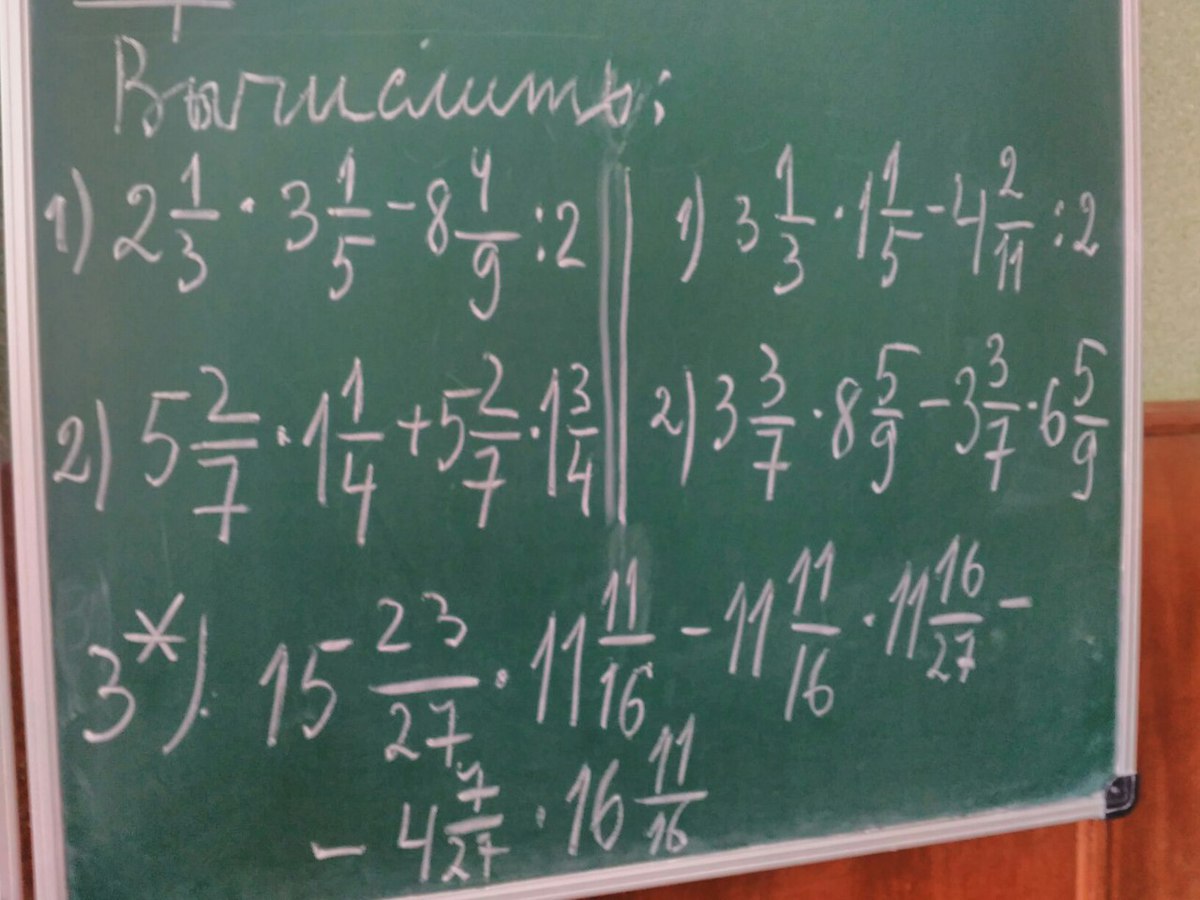 Вычислить:
1) 2 1/3 · 3 1/5 - 8 4/9 : 2
2) 5 2/7 · 1 1/4 + 5 2/7 · 1 3/4
1) 3 1/3 · 1 1/5 - 4 2/11 : 2
2) 3 3/7 · 8 5/9 - 3 3/7 · 6 5/9
3*). 15 23/27 · 11 11/16 - 11 11/16 · 11 16/27 -
- 4 7/27 · 16 11/16